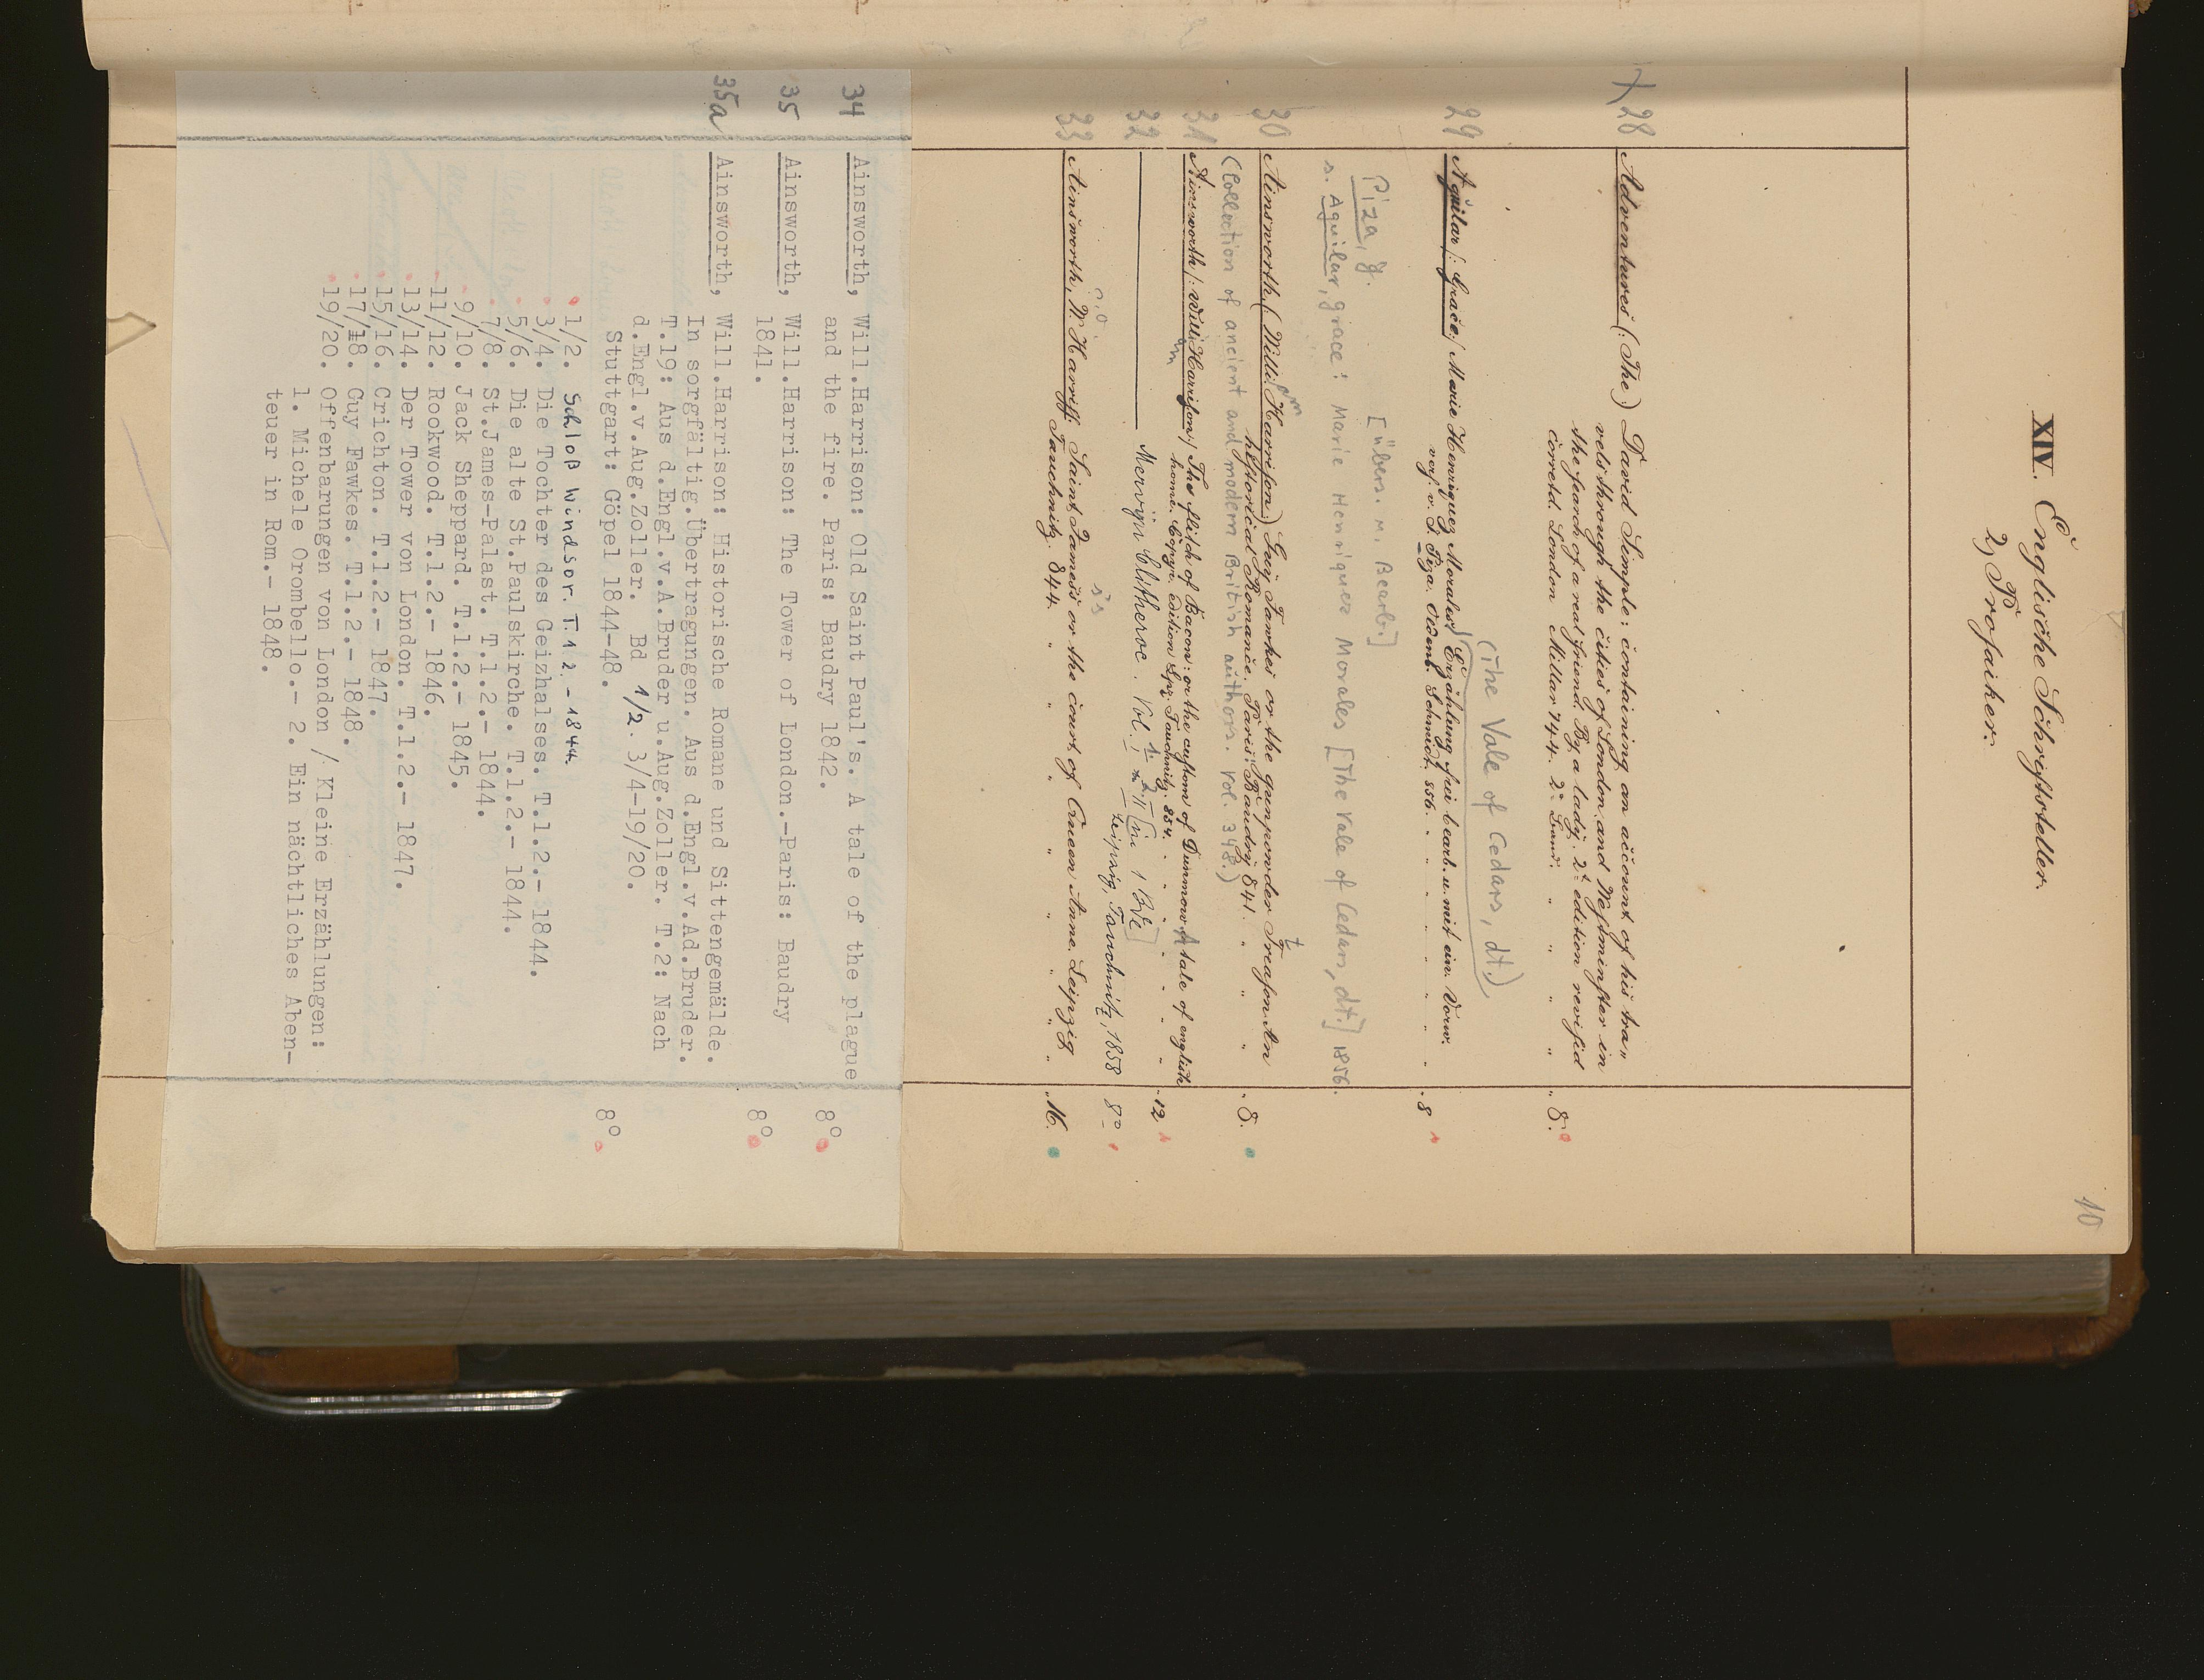 10
XIV. Englische Schriftsteller.
2) Prosaiker.
28 Adventures (: The :) David Simple: containing an account of his tra„
vels through the cities of London and Westminster in
the search of a real friend. By a lady. 2ᵈ edition revised
corretd. London Millar 744. 2 Bund. „ „ „ „ 8.
(The Vale of Cedars, dt.)
29 Aguilar |: Grace :| Marie Henriquez Morales. Erzählung frei bearb. u. mit ein. Vorw.
vers. v. J. Piza. Oldenb. Schmidt. 856. „ „ „ „ „ 8
Piza, J. [Übers. u. Bearb.]
s. Aguilar, Grace: Marie Henriquez Morales [The Vale of Cedars, dt.] 1856.
30 Ainsworth (: Willi. Harrison :) Guy Fawkes or the gunpowder Treason. An
historical Romance. Paris: Baudry 841. „ „ „ 8.
(Collection of ancient and modern British authors. Vol. 348.)
31 Ainsworth |: Will. Harrison :| The flitch of Bacon: or the custom of Dunmow. A tale of english
home. Copyr. edition Lpz. Tauchnitz. 854. „ „ „ „ 12
32 ——— Mervyn Clitheroe. Vol. 1. u. 2. [in 1 Bde]
Leipzig, Tauchnitz, 1858 8º
33 Ainsworth, W. Harriss. Saint James's or the court of Queen Anne. Leipzig
Tauchnitz. 844. „ „ „ „ „ „ 16.
34 Ainsworth, Will.Harrison: Old Saint Paul's. A tale of the plague
and the fire. Paris: Baudry 1842. 8º
35 Ainsworth, Will.Harrison: The Tower of London.-Paris: Baudry
1841. 8º
35a Ainsworth, Will.Harrison: Historische Romane und Sittengemälde.
In sorgfältig.Übertragungen. Aus d.Engl.v.Ad.Bruder.
T.19: Aus d.Engl.v.A.Bruder u.Aug.Zoller. T.2: Nach
d.Engl.v.Aug.Zoller. Bd 1/2. 3/4-19/20.
Stuttgart: Göpel 1844-48. 8º
1/2. Schloß Windsor. T.1 2. - 1844.
3/4. Die Tochter des Geizhalses. T.1.2.- 1844.
5/6. Die alte St.Paulskirche. T.1.2.- 1844.
7/8. St.James-Palast. T.1.2.- 1844.
9/10. Jack Sheppard. T.1.2.- 1845.
11/12. Rookwood. T.1.2.- 1846.
13/14. Der Tower von London. T.1.2.- 1847.
15/16. Crichton. T.1.2.- 1847.
17/18. Guy Fawkes. T.1.2.- 1848.
19/20. Offenbarungen von London / Kleine Erzählungen:
1. Michele Orombello.- 2. Ein nächtliches Aben-
teuer in Rom.- 1848.